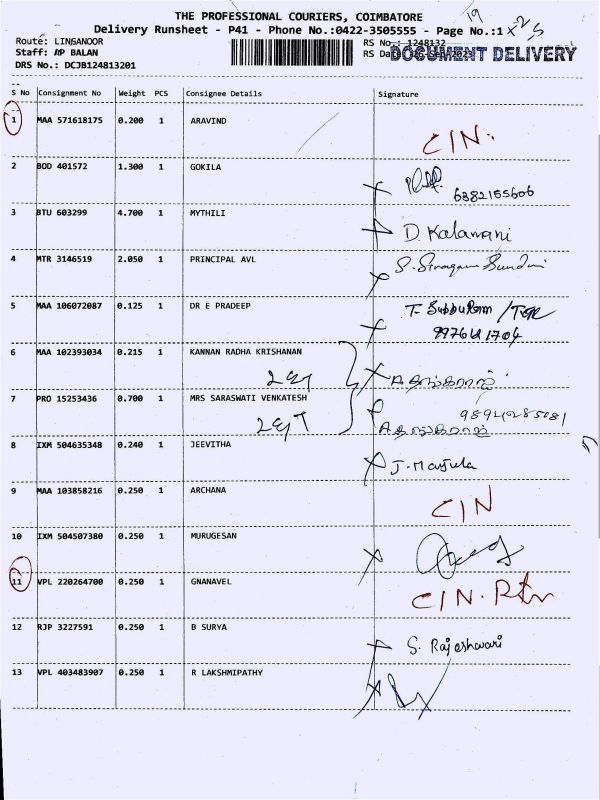 THE PROFESSIONAL COURIERS, COIMBATORE
19
Delivery Runsheet - P41 - Phone No.:0422-3505555 - Page No.:1
Route: LINGANOOR
RS No.: 1248132
Staff: AP BALAN
RS Da
DOCUMENT DELIVERY
DRS No.: DCJB124813201
S No Consignment No Weight PCS Consignee Details Signature
1 MAA 571618175 0.200 1 ARAVIND
C/N.
2 BOD 401572 1.300 1 GOKILA
6382155606
3 BTU 603299 4.700 1 MYTHILI
D. Kalamani
4 MTR 3146519 2.050 1 PRINCIPAL AVL
5 MAA 106072087 0.125 1 DR E PRADEEP
T. Subburam
9976411704
6 MAA 102393034 0.215 1 KANNAN RADHA KRISHANAN
7 PRO 15253436 0.700 1 MRS SARASWATI VENKATESH
8 IXM 504635348 0.240 1 JEEVITHA
J. Manjula
9 MAA 103858216 0.250 1 ARCHANA
C/N
10 IXM 504507380 0.250 1 MURUGESAN
11 VPL 220264700 0.250 1 GNANAVEL
C/N. Rtn
12 RJP 3227591 0.250 1 B SURYA
S. Rajeshwari
13 VPL 403483907 0.250 1 R LAKSHMIPATHY